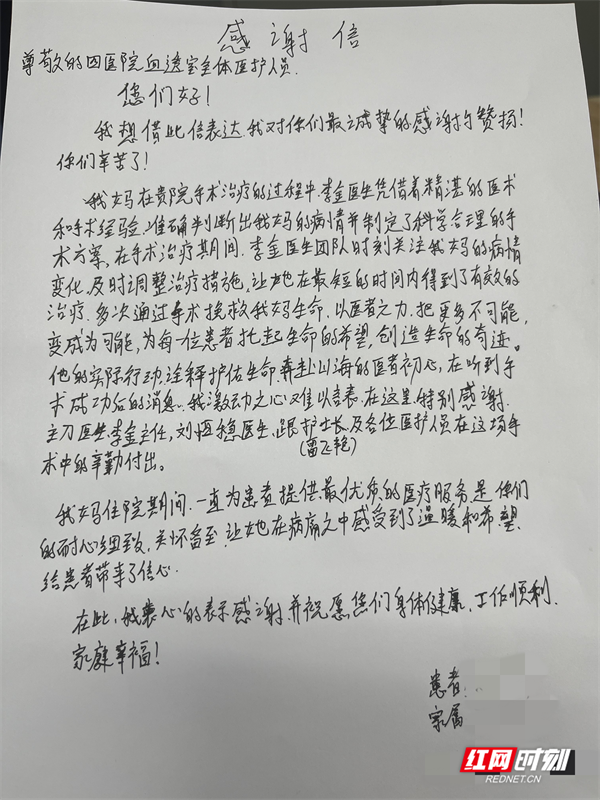 感谢信
尊敬的四医院血透室全体医护人员.
您们好!
我想借此信表达我对你们最诚挚的感谢与赞扬!
你们辛苦了!
我妈在贵院手术治疗的过程中.李金医生凭借着精湛的医术
和手术经验.准确判断出我妈的病情并制定了科学合理的手
术方案,在手术治疗期间.李金医生团队时刻关注我妈的病情
变化,及时调整治疗措施,让她在最短的时间内得到了有效的
治疗.多次通过手术挽救我妈生命.以医者之力.把更多不可能,
变成为可能,为每一位患者托起生命的希望,创造生命的奇迹。
他的实际行动,诠释护佑生命.奔赴山海的医者初心,在听到手
术成功后的消息.我激动之心难以言表.在这里.特别感谢.
主刀医生李金主任,刘恒稳医生,护士长及各位医护人员在这场手
(雷飞艳)
术中的辛勤付出。
我妈住院期间.一直为患者提供最优质的医疗服务.是你们
的耐心细致,关怀备至,让她在病痛之中感受到了温暖和希望
给患者带来了信心.
在此,我衷心的表示感谢.并祝愿您们身体健康,工作顺利.
家庭幸福!
患者
家属
红网时刻
REDNET.CN